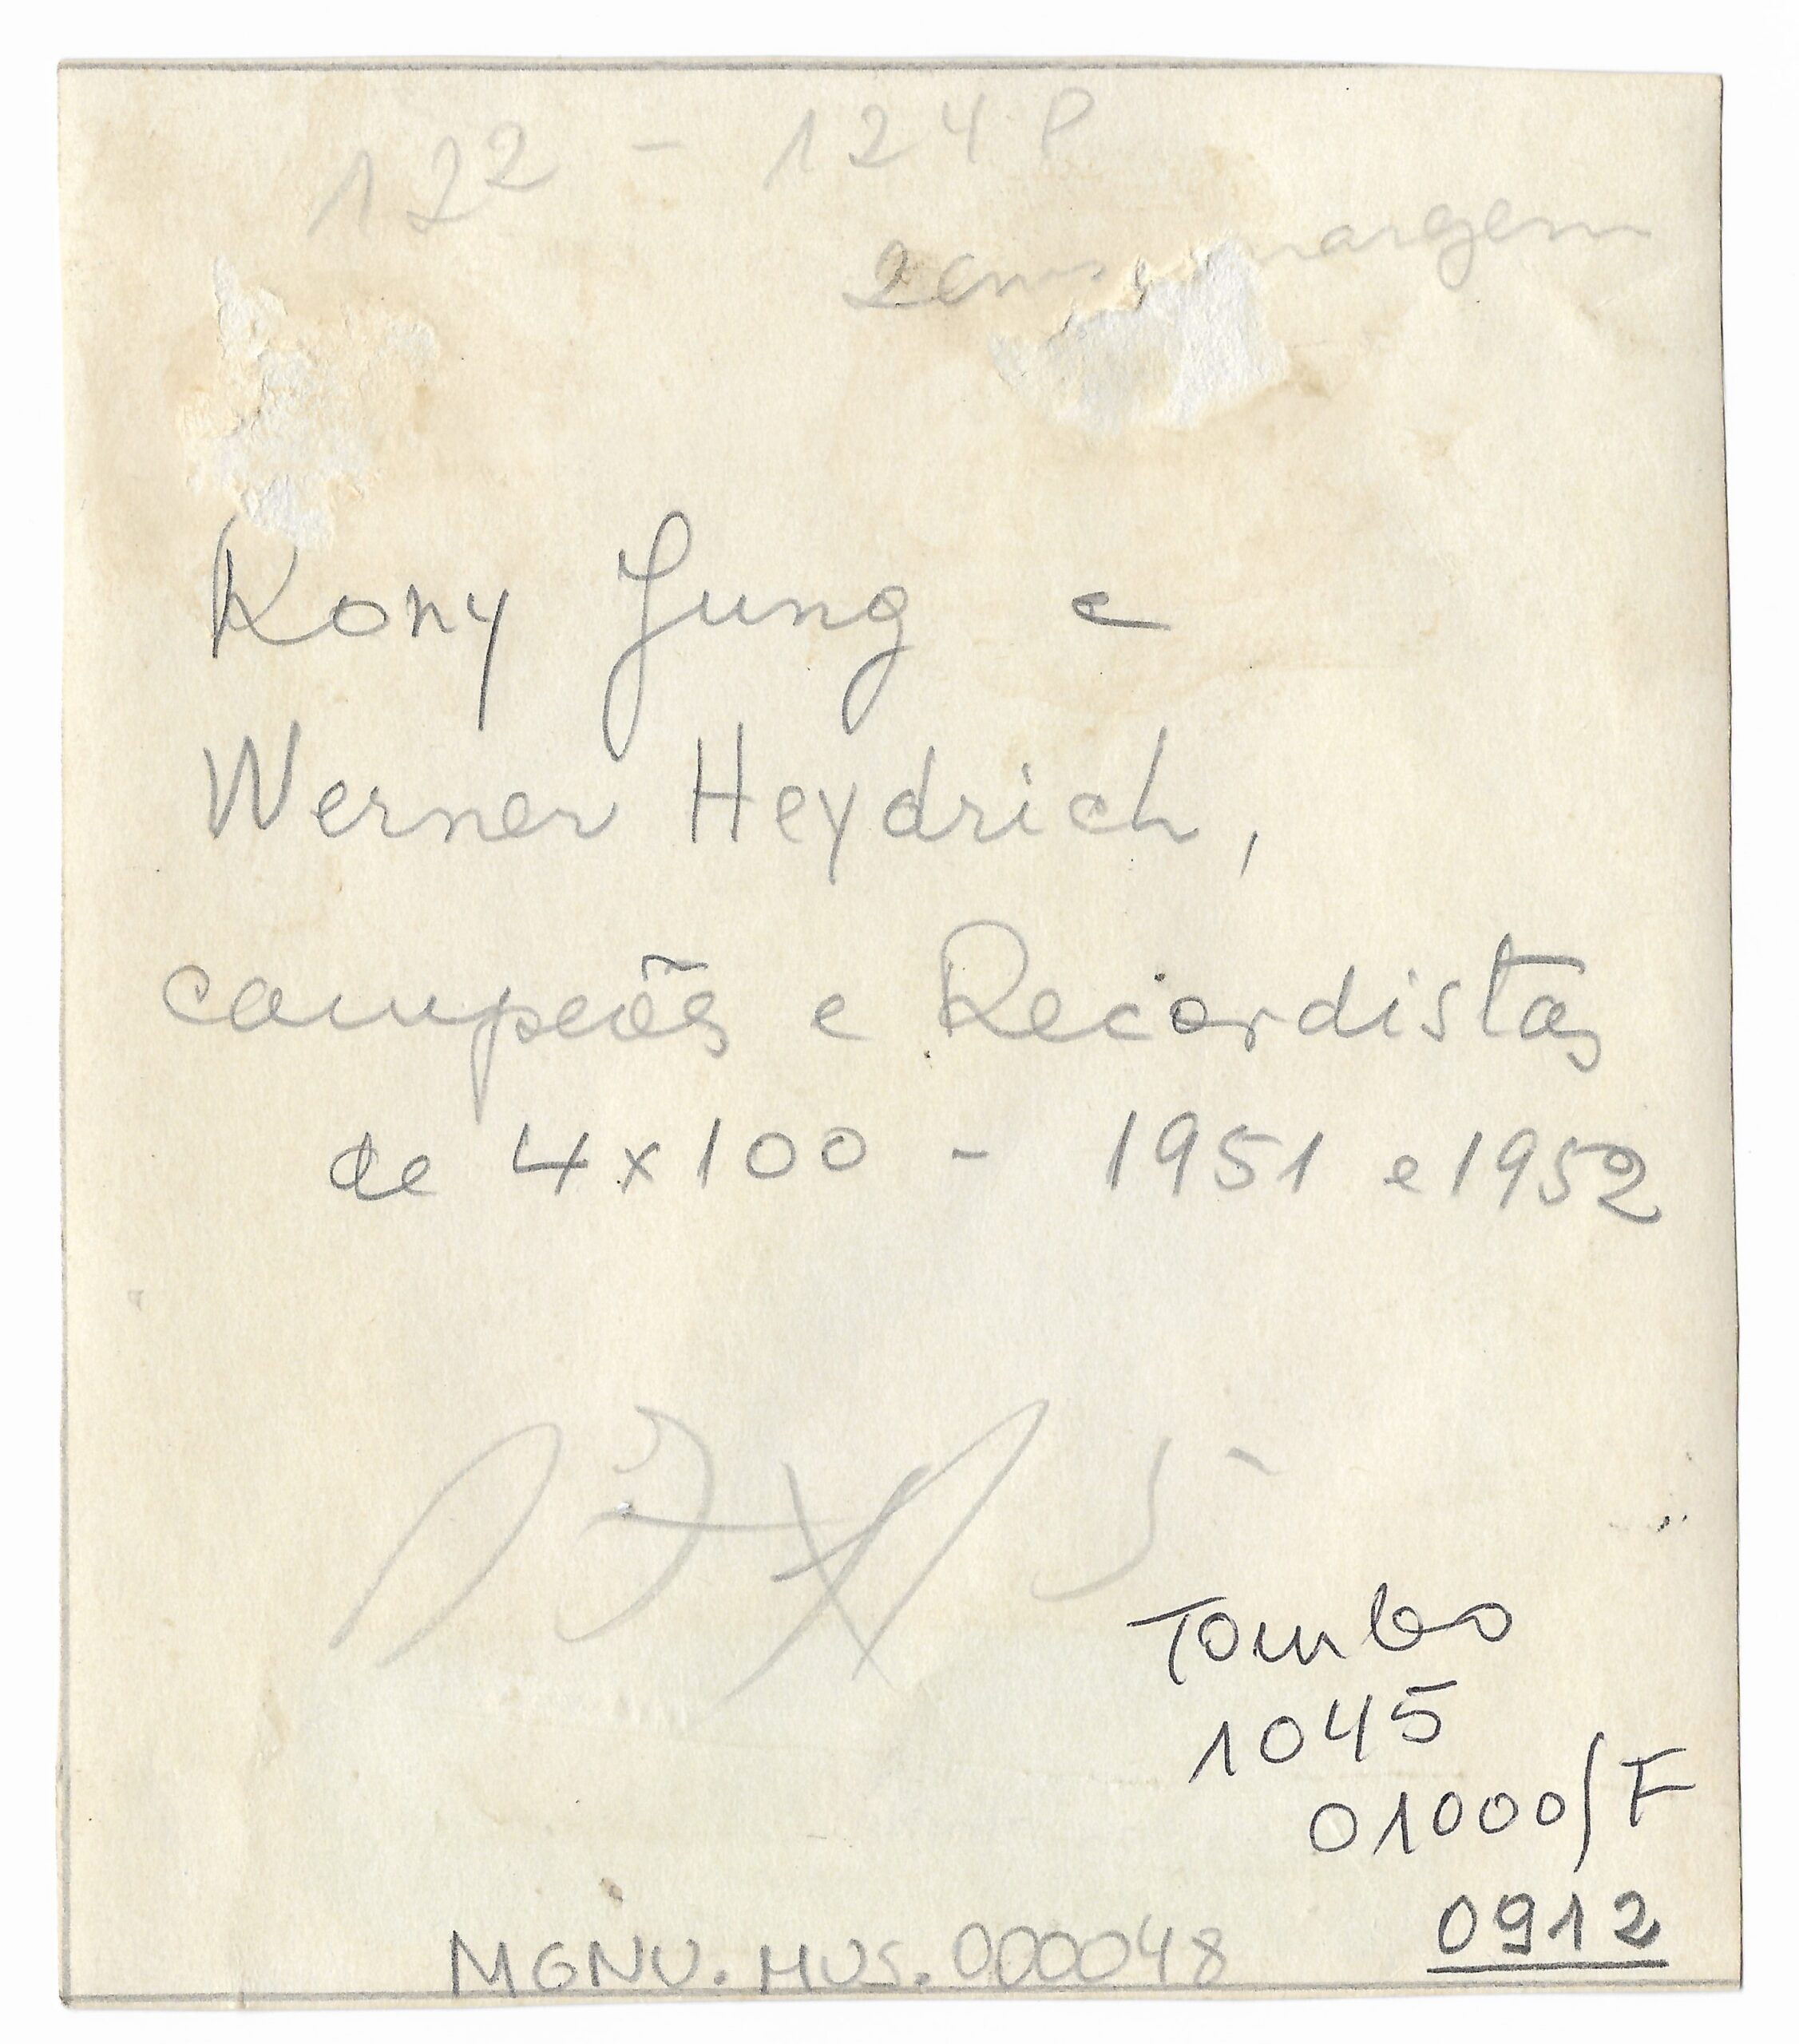 122 - 124 P
2 cms margem
Kony Jung e
Werner Heydrich,
campeões e Recordistas
de 4x100 - 1951 e 1952
17 x 15
Tombo
1045
01000/F
0912
MGNV.MUS.000048